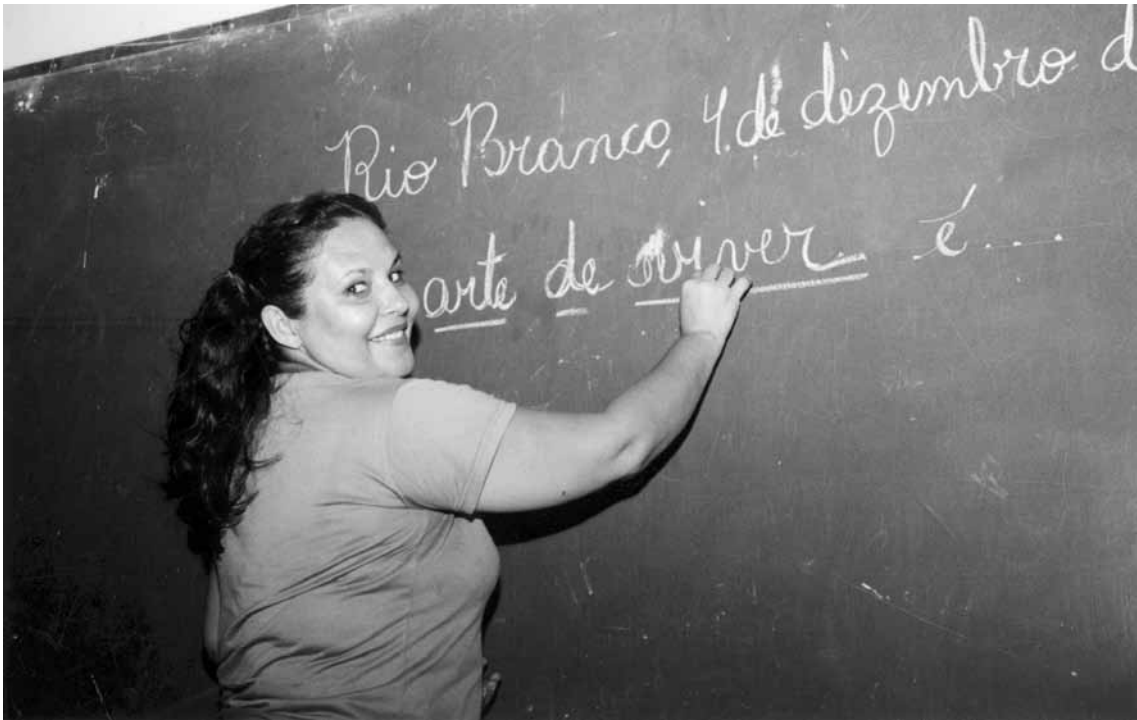 Rio Branco, 4 de dezembro d
arte de viver é...